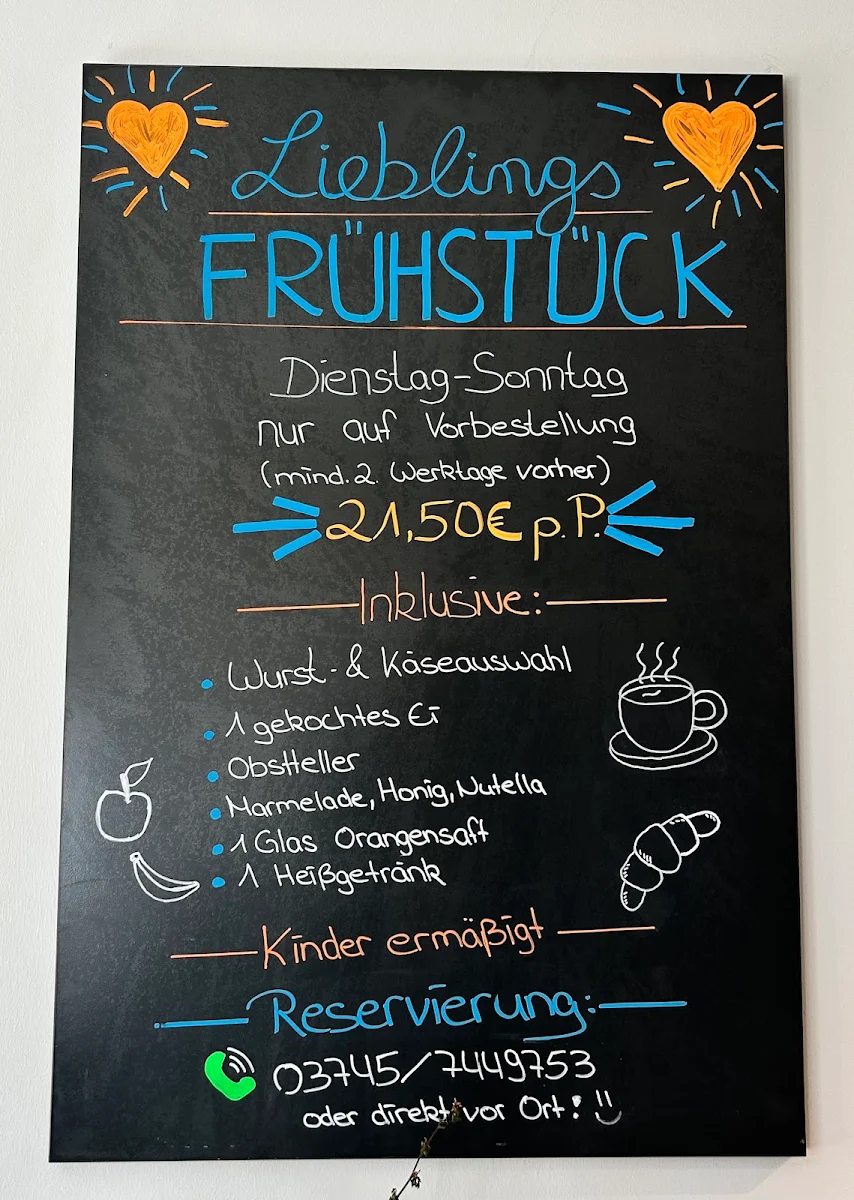 Lieblings
FRÜHSTÜCK
Dienstag-Sonntag
nur auf Vorbestellung
(mind. 2. Werktage vorher)
21,50€ p.P.
Inklusive:
• Wurst- & Käseauswahl
• 1 gekochtes Ei
• Obstteller
• Marmelade, Honig, Nutella
• 1 Glas Orangensaft
• 1 Heißgetränk
Kinder ermäßigt
Reservierung:
03745/7449753
oder direkt vor Ort!